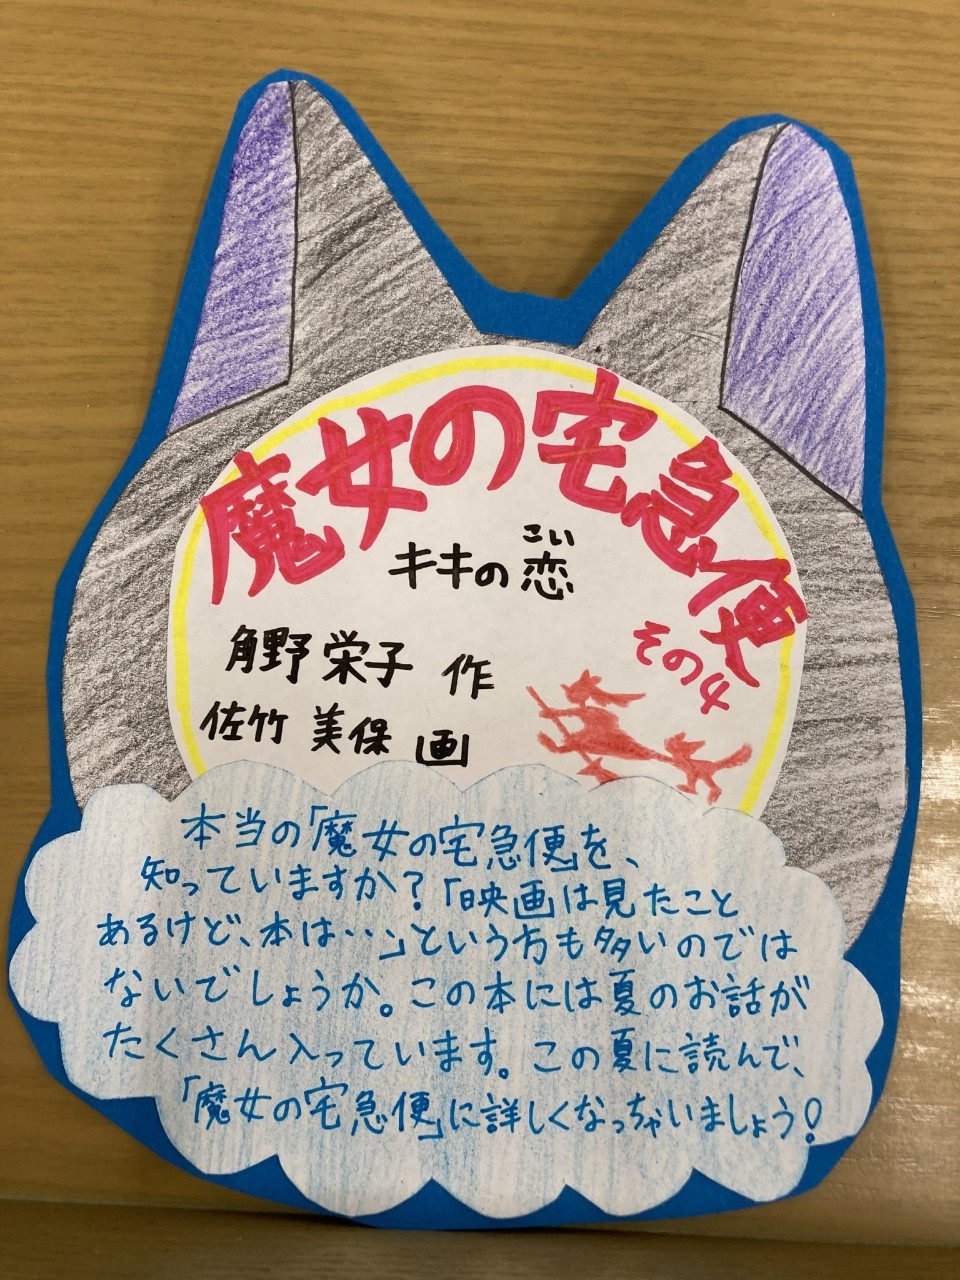 魔女の宅急便
その4
こい
キキの恋
角野栄子 作
佐竹美保 画
本当の「魔女の宅急便」を、
知っていますか?「映画は見たこと
あるけど、本は‥」という方も多いのでは
ないでしょうか。この本には夏のお話が
たくさん入っています。この夏に読んで、
「魔女の宅急便」に詳しくなっちゃいましょう!